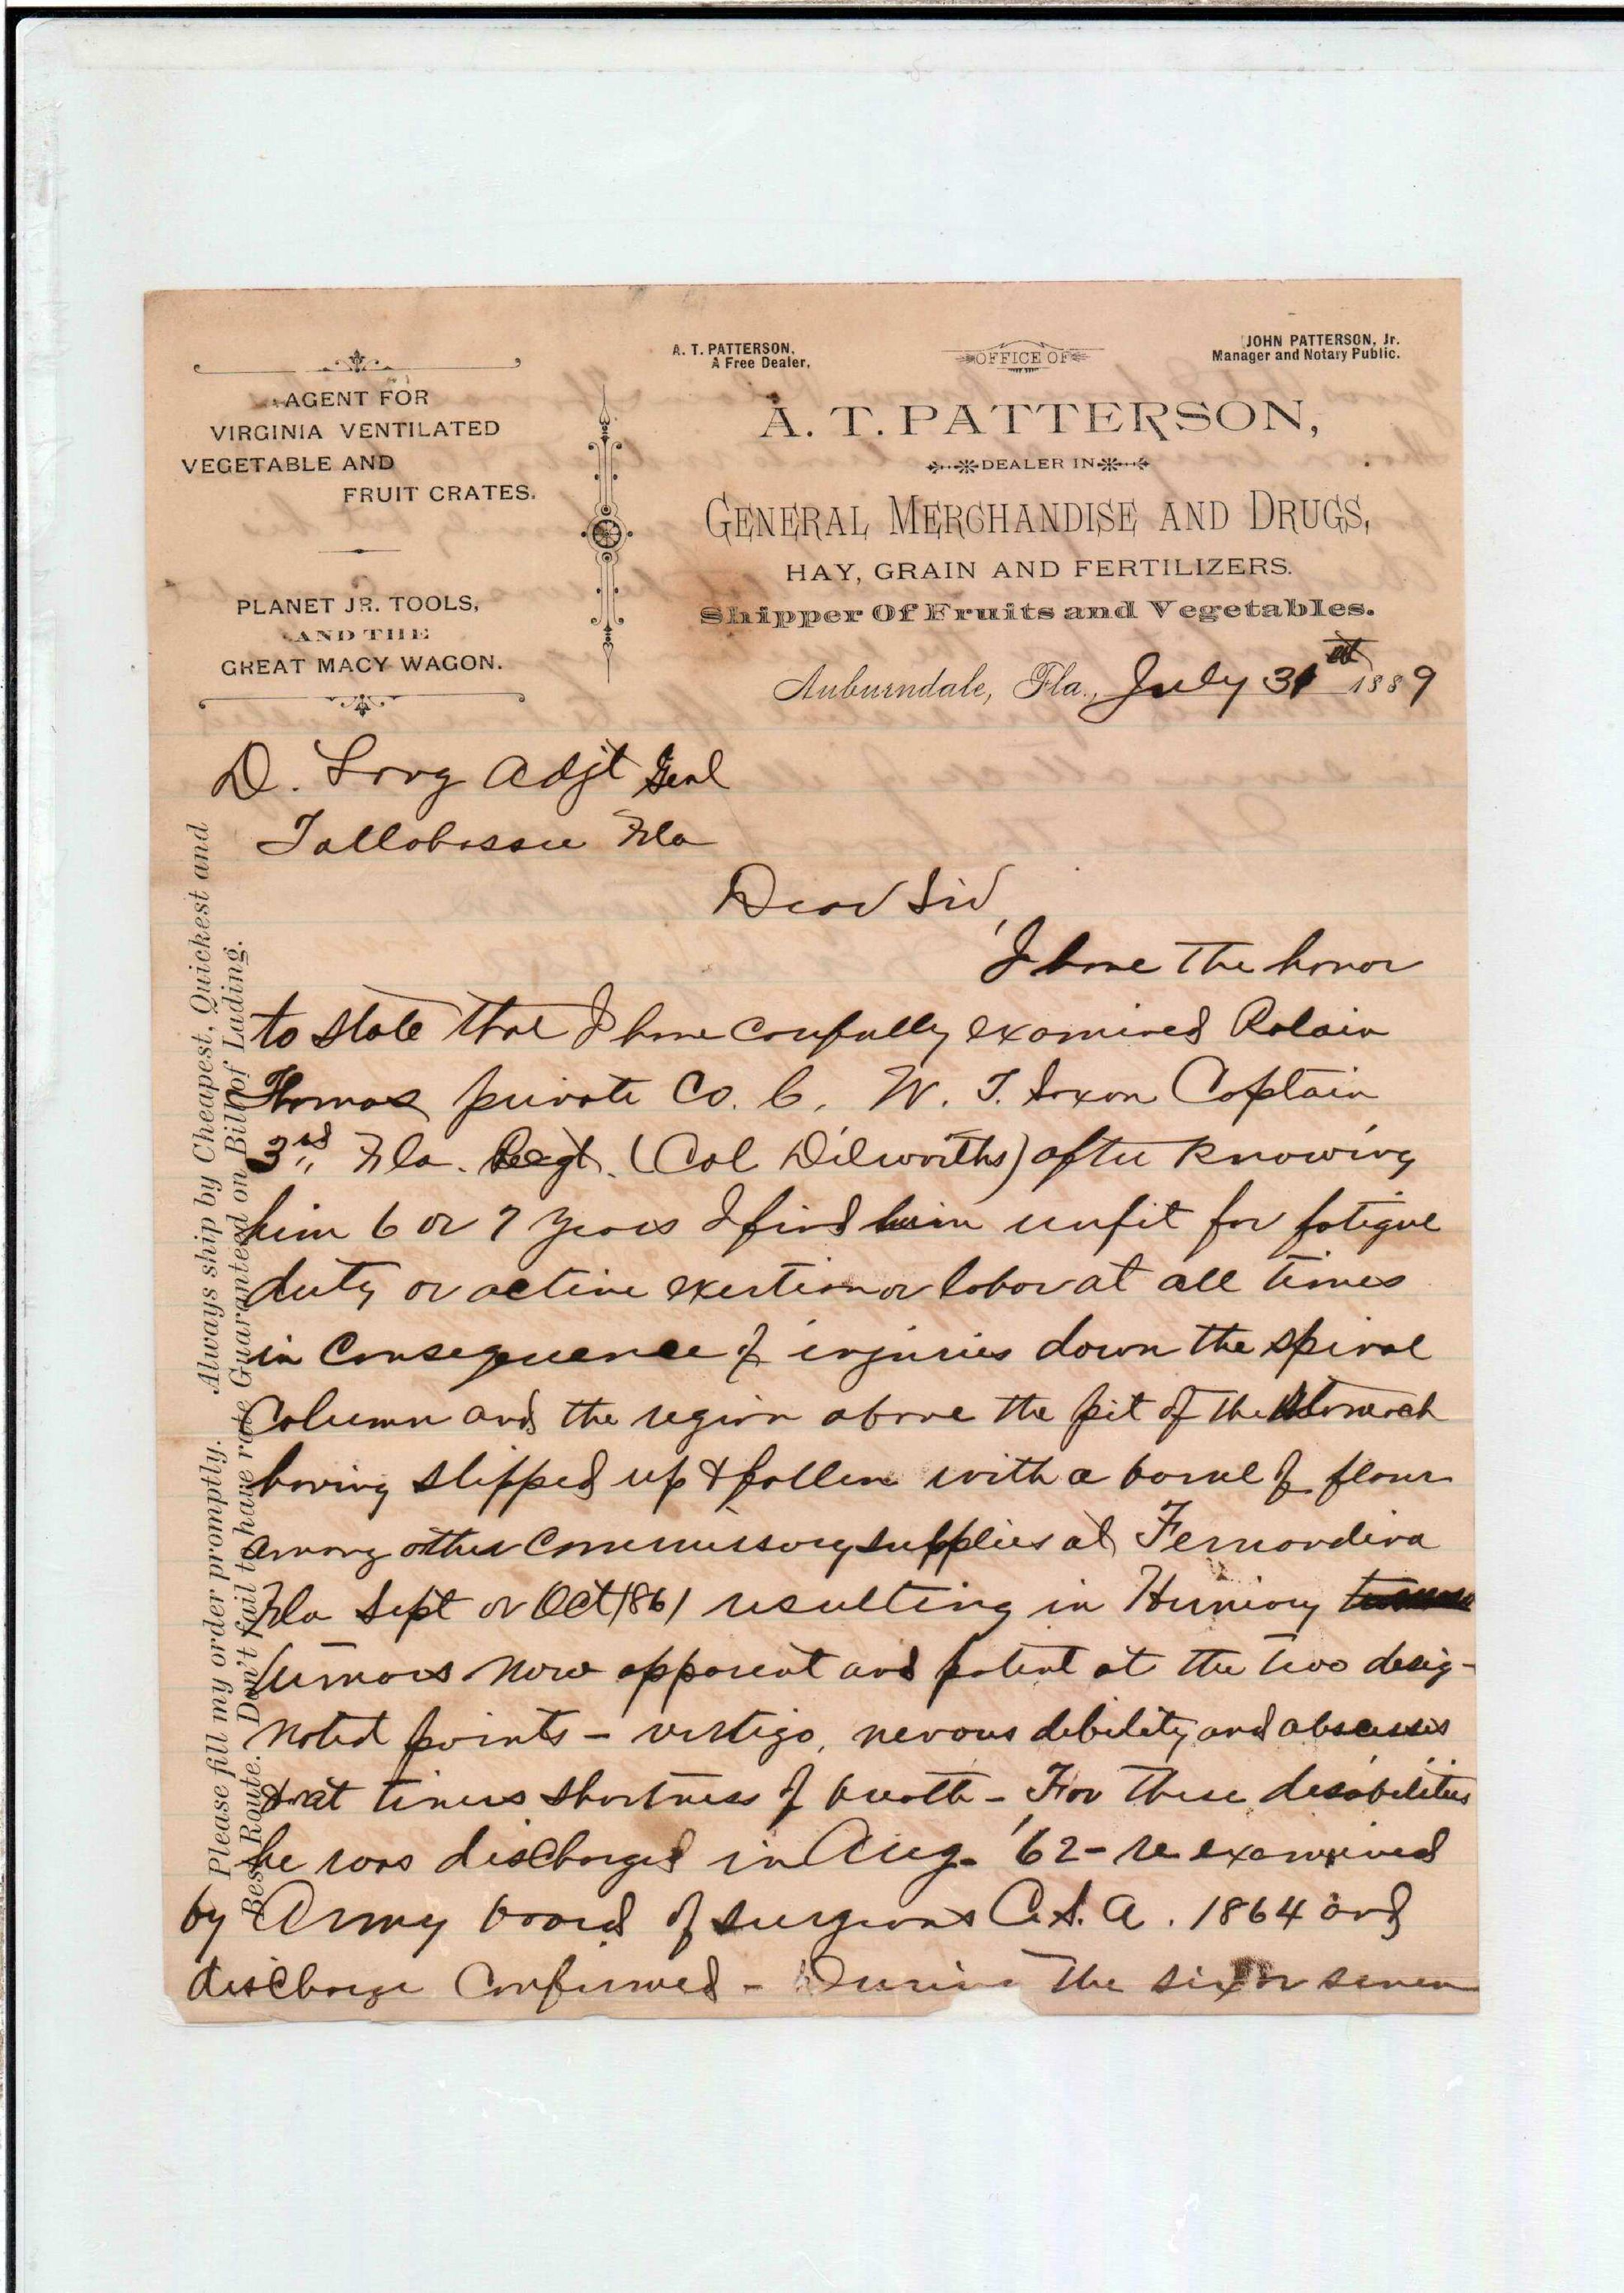 A. T. PATTERSON,
A Free Dealer,
OFFICE OF
JOHN PATTERSON, Jr.
Manager and Notary Public.
AGENT FOR
VIRGINIA VENTILATED
VEGETABLE AND
FRUIT CRATES.
PLANET JR. TOOLS,
AND THE
GREAT MACY WAGON.
A. T. PATTERSON,
DEALER IN
GENERAL MERCHANDISE AND DRUGS,
HAY, GRAIN AND FERTILIZERS.
Shipper Of Fruits and Vegetables.
Auburndale, Fla., July 31st 1889
Please fill my order promptly. Always ship by Cheapest, Quickest and
Best Route. Don't fail to have rate Guaranteed on Bill of Lading.
D. Lang Adjt Genl
Tallahassee Fla
Dear Sir,
I have the honor
to state that I have carefully examined
Thomas private Co. C. W. T. Saxon Captain
3rd Fla. Regt. (Col Dilworths) after knowing
him 6 or 7 years I find him unfit for fatigue
duty or active exertion or labor at all times
in consequence of injuries down the spinal
Column and the region above the pit of the stomach
having slipped up & fallen with a barrel of flour
among other commissary supplies at Fernandina
Fla Sept or Oct 1861 resulting in
tumors now apparent and patent at the two desig-
nated points - vertigo, nervous debility and abscesses
& at times shortness of breath - For these disabilities
he was discharged in Aug. '62 - re examined
by Army board of surgeons C.S.A. 1864 and
discharge confirmed - During the six or seven